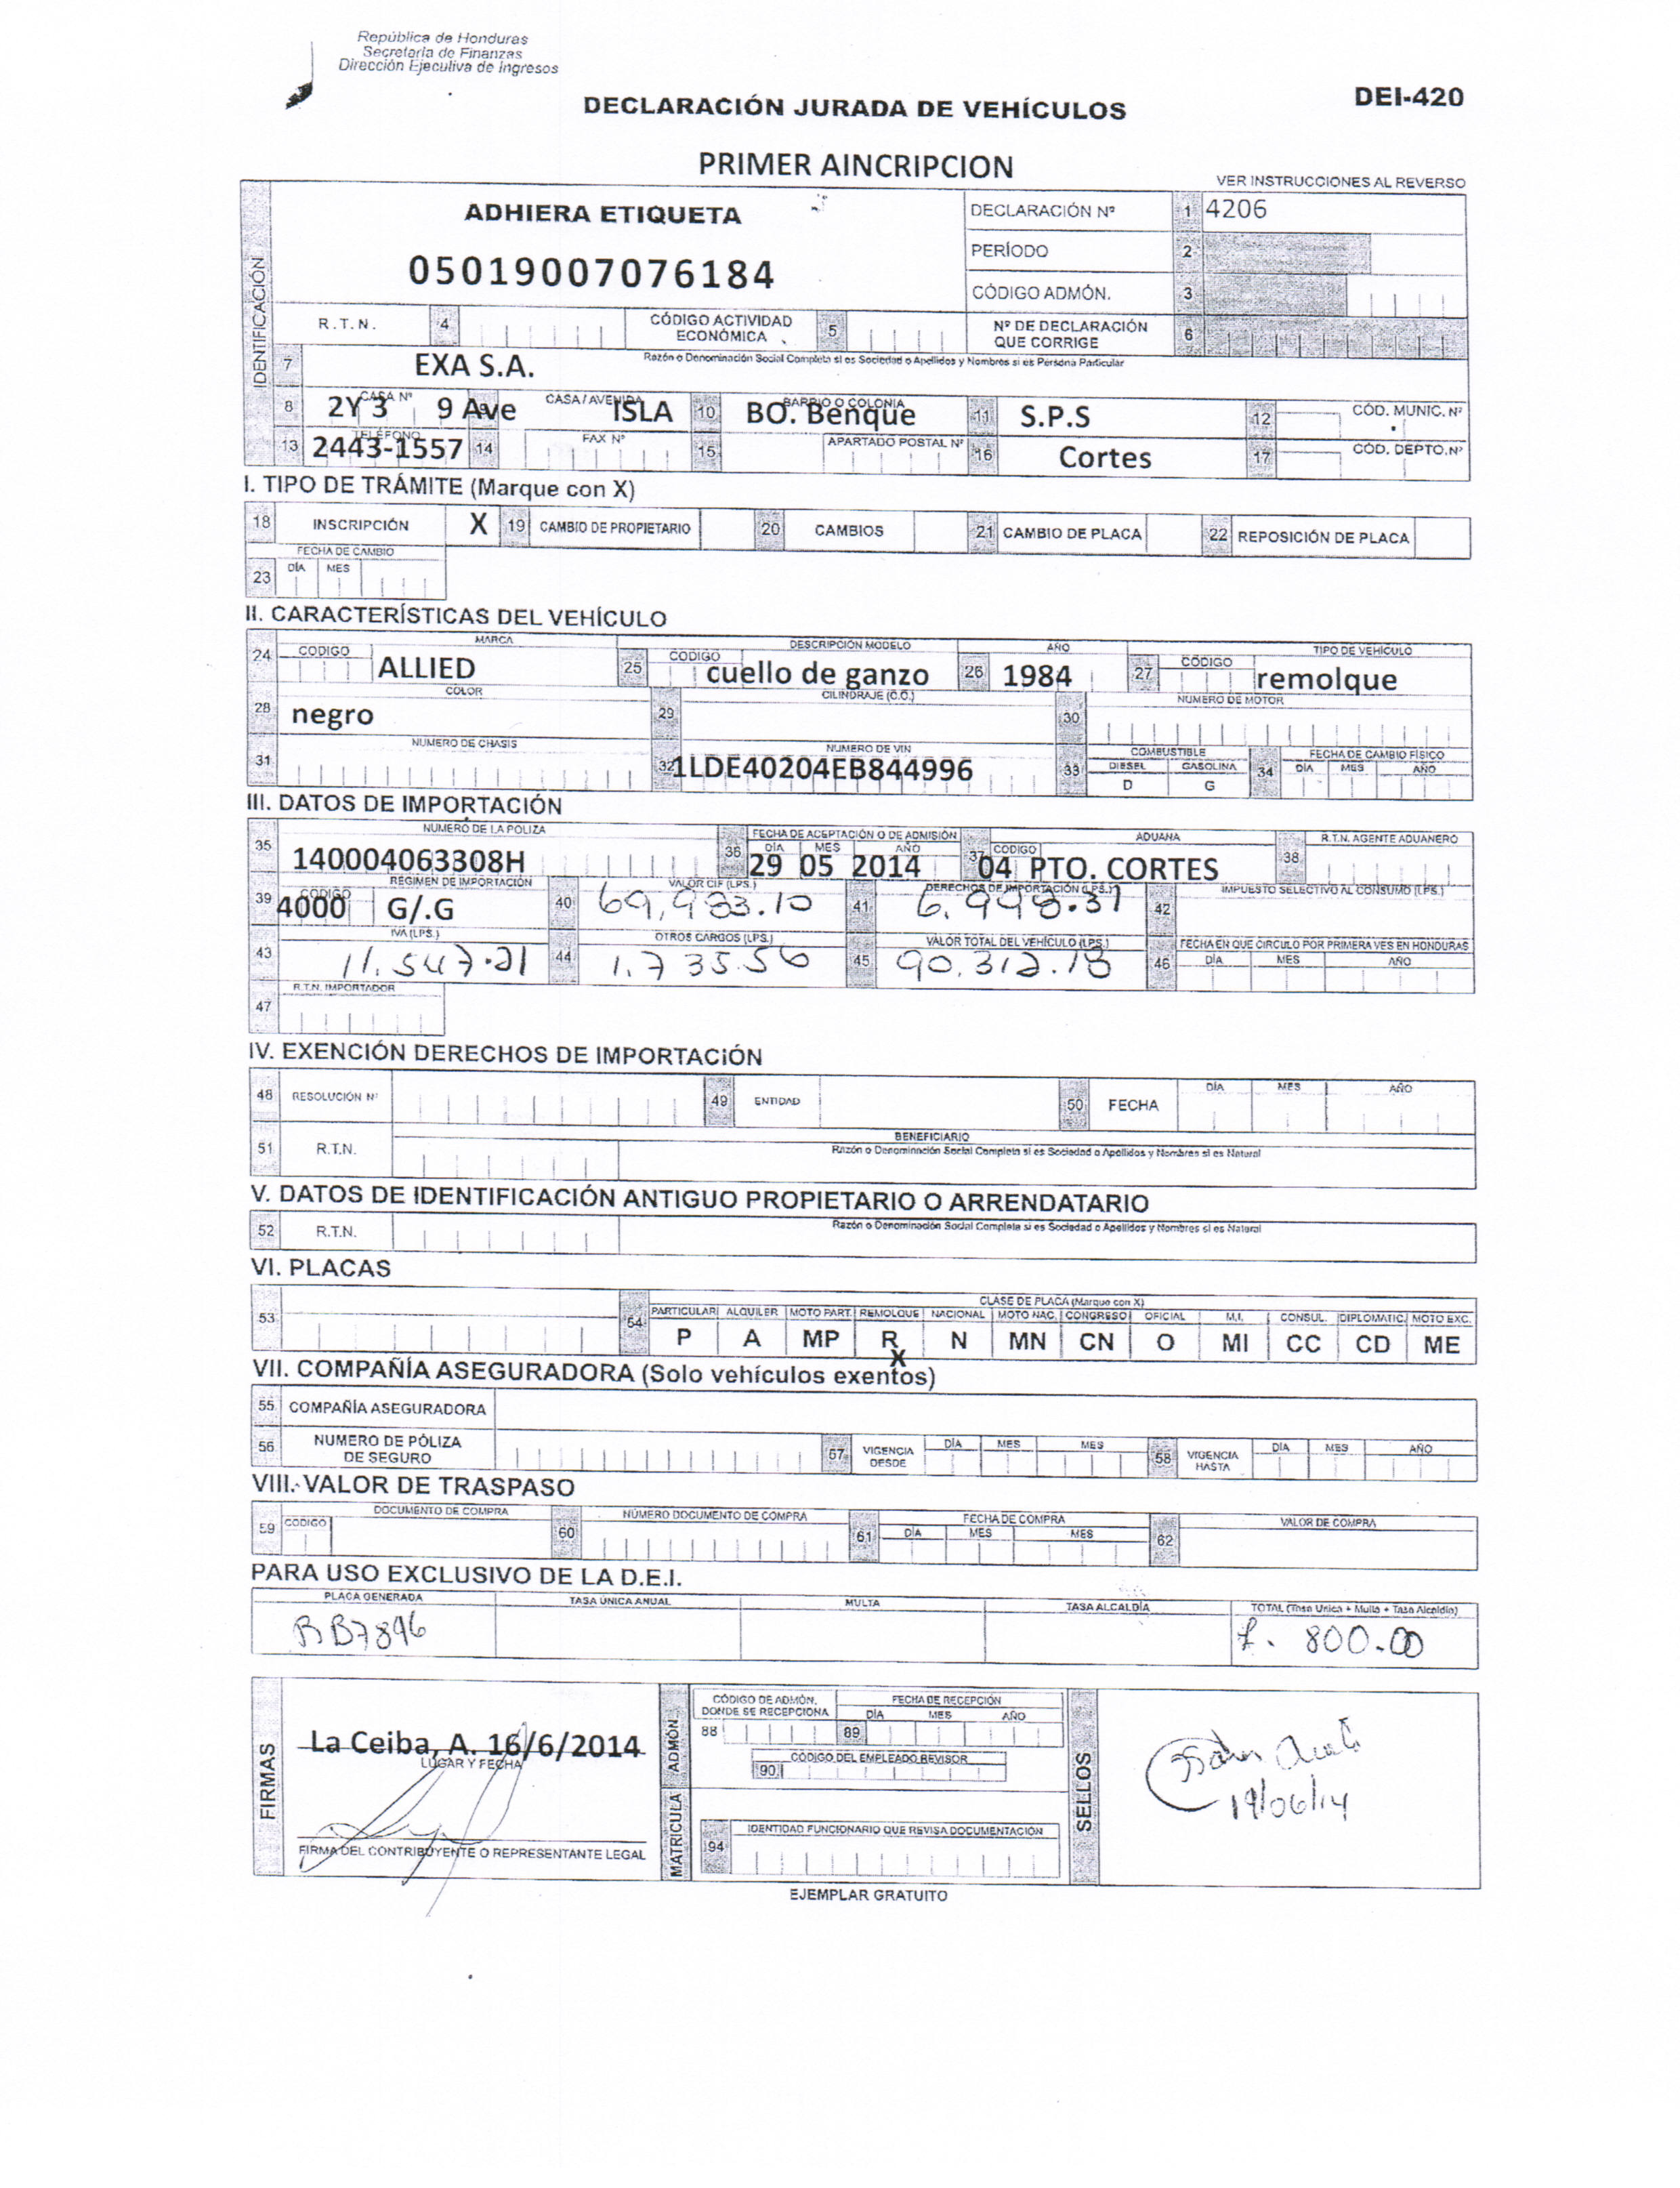 República de Honduras
Secretaría de Finanzas
Dirección Ejecutiva de Ingresos
DEI-420
DECLARACIÓN JURADA DE VEHÍCULOS
PRIMER AINCRIPCION
VER INSTRUCCIONES AL REVERSO
IDENTIFICACIÓN
ADHIERA ETIQUETA
05019007076184
DECLARACIÓN Nº 1 4206
PERÍODO 2
CÓDIGO ADMÓN. 3
R.T.N. 4 CÓDIGO ACTIVIDAD ECONÓMICA 5 Nº DE DECLARACIÓN QUE CORRIGE 6
7 EXA S.A. Razón o Denominación Social Completa si es Sociedad o Apellidos y Nombres si es Persona Particular
CASA Nº CASA / AVENIDA BARRIO O COLONIA
8 2Y 3 9 Ave ISLA 10 BO. Benque 11 S.P.S 12 CÓD. MUNIC. Nº
TELÉFONO FAX Nº APARTADO POSTAL Nº
13 2443-1557 14 15 16 Cortes 17 CÓD. DEPTO. Nº
I. TIPO DE TRÁMITE (Marque con X)
18 INSCRIPCIÓN X 19 CAMBIO DE PROPIETARIO 20 CAMBIOS 21 CAMBIO DE PLACA 22 REPOSICIÓN DE PLACA
FECHA DE CAMBIO
23 DÍA MES
II. CARACTERÍSTICAS DEL VEHÍCULO
MARCA DESCRIPCIÓN MODELO AÑO TIPO DE VEHÍCULO
24 CODIGO ALLIED 25 CODIGO cuello de ganzo 26 1984 27 CÓDIGO remolque
COLOR CILINDRAJE (C.C.) NUMERO DE MOTOR
28 negro 29 30
NUMERO DE CHASIS NUMERO DE VIN COMBUSTIBLE FECHA DE CAMBIO FÍSICO
31 32 1LDE40204EB844996 33 DIESEL D GASOLINA G 34 DÍA MES AÑO
III. DATOS DE IMPORTACIÓN
NUMERO DE LA POLIZA FECHA DE ACEPTACIÓN O DE ADMISIÓN ADUANA R.T.N. AGENTE ADUANERO
DÍA MES AÑO CODIGO
35 140004063308H 36 29 05 2014 37 04 PTO. CORTES 38
CODIGO RÉGIMEN DE IMPORTACIÓN VALOR CIF (LPS.) DERECHOS DE IMPORTACIÓN (LPS.) IMPUESTO SELECTIVO AL CONSUMO (LPS.)
39 4000 G/.G 40 69,983.10 41 6.998.31 42
IVA (LPS.) OTROS CARGOS (LPS.) VALOR TOTAL DEL VEHÍCULO (LPS.) FECHA EN QUE CIRCULO POR PRIMERA VES EN HONDURAS
43 11.547.21 44 1.735.56 45 90.312.18 46 DÍA MES AÑO
R.T.N. IMPORTADOR
47
IV. EXENCIÓN DERECHOS DE IMPORTACIÓN
48 RESOLUCIÓN Nº 49 ENTIDAD 50 FECHA DÍA MES AÑO
BENEFICIARIO
51 R.T.N. Razón o Denominación Social Completa si es Sociedad o Apellidos y Nombres si es Natural
V. DATOS DE IDENTIFICACIÓN ANTIGUO PROPIETARIO O ARRENDATARIO
52 R.T.N. Razón o Denominación Social Completa si es Sociedad o Apellidos y Nombres si es Natural
VI. PLACAS
53 54 CLASE DE PLACA (Marque con X)
PARTICULAR ALQUILER MOTO PART. REMOLQUE NACIONAL MOTO NAC. CONGRESO OFICIAL M.I. CONSUL. DIPLOMATIC. MOTO EXC.
P A MP R N MN CN O MI CC CD ME
X
VII. COMPAÑÍA ASEGURADORA (Solo vehículos exentos)
55 COMPAÑÍA ASEGURADORA
56 NUMERO DE PÓLIZA DE SEGURO 57 VIGENCIA DESDE DÍA MES MES 58 VIGENCIA HASTA DÍA MES AÑO
VIII. VALOR DE TRASPASO
DOCUMENTO DE COMPRA NÚMERO DOCUMENTO DE COMPRA FECHA DE COMPRA VALOR DE COMPRA
59 CODIGO 60 61 DÍA MES MES 62
PARA USO EXCLUSIVO DE LA D.E.I.
PLACA GENERADA TASA ÚNICA ANUAL MULTA TASA ALCALDÍA TOTAL (Tasa Unica + Multa + Tasa Alcaldía)
RB7896 L. 800.00
FIRMAS
La Ceiba, A. 16/6/2014
LUGAR Y FECHA
FIRMA DEL CONTRIBUYENTE O REPRESENTANTE LEGAL
MATRICULA ADMÓN
CÓDIGO DE ADMÓN. DONDE SE RECEPCIONA FECHA DE RECEPCIÓN
88 89 DÍA MES AÑO
CÓDIGO DEL EMPLEADO REVISOR
90
IDENTIDAD FUNCIONARIO QUE REVISA DOCUMENTACIÓN
94
SELLOS
19/06/14
EJEMPLAR GRATUITO